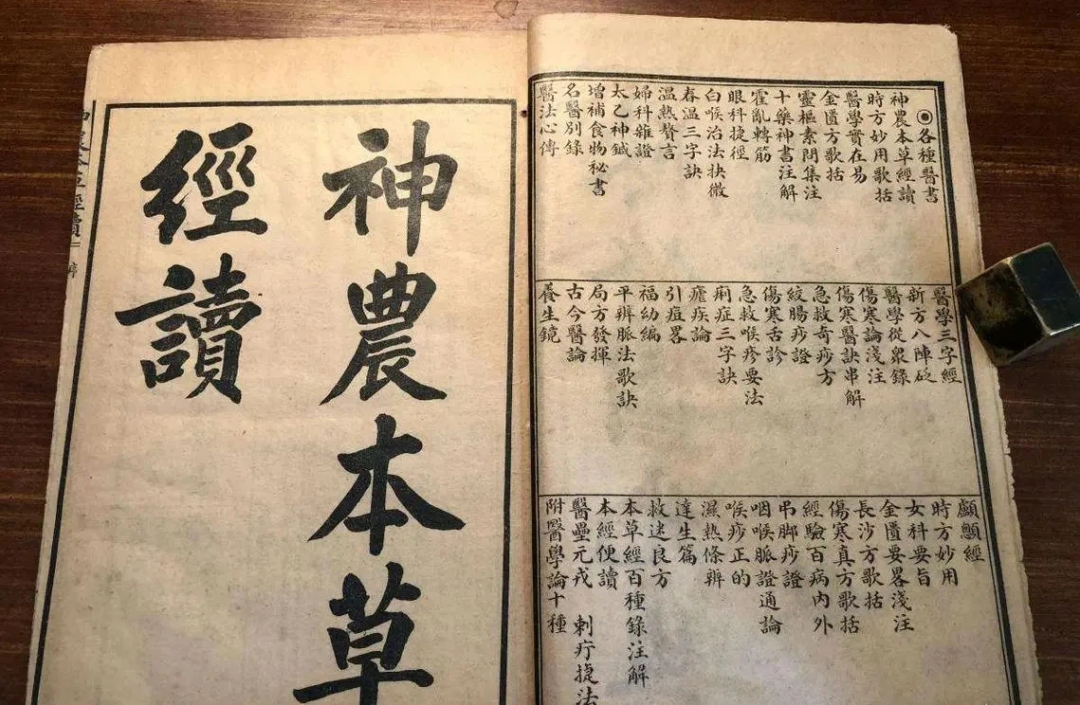 ◉各種醫書
神農本草經讀
時方妙用歌括
醫學實在易
金匱方歌括
靈樞素問集注
十藥神書注解
霍亂轉筋
眼科捷徑
白喉治法抉微
春溫三字訣
溫熱贅言
婦科雜證
太乙神鍼
增補食物秘書
名醫別錄
醫法心傳
醫學三字經
新方八陣砭
醫學從衆錄
傷寒論淺注
傷寒醫訣串解
急救奇痧方
絞腸痧證
傷寒舌診
急救喉疹要法
痢症三字訣
瘧疾論
引痘畧
福幼編
平辨脈法歌訣
局方發揮
古今醫論
養生鏡
顱顖經
時方妙用
女科要旨
金匱要畧淺注
長沙方歌括
傷寒真方歌括
經驗百病內外
弔脚痧證
咽喉脈證通論
喉痧正的
濕熱條辨
達生篇
救迷良方
本草經百種錄注解
本經便讀
醫壘元戎　刺疔捷法
附醫學論十種
神農本草
經讀